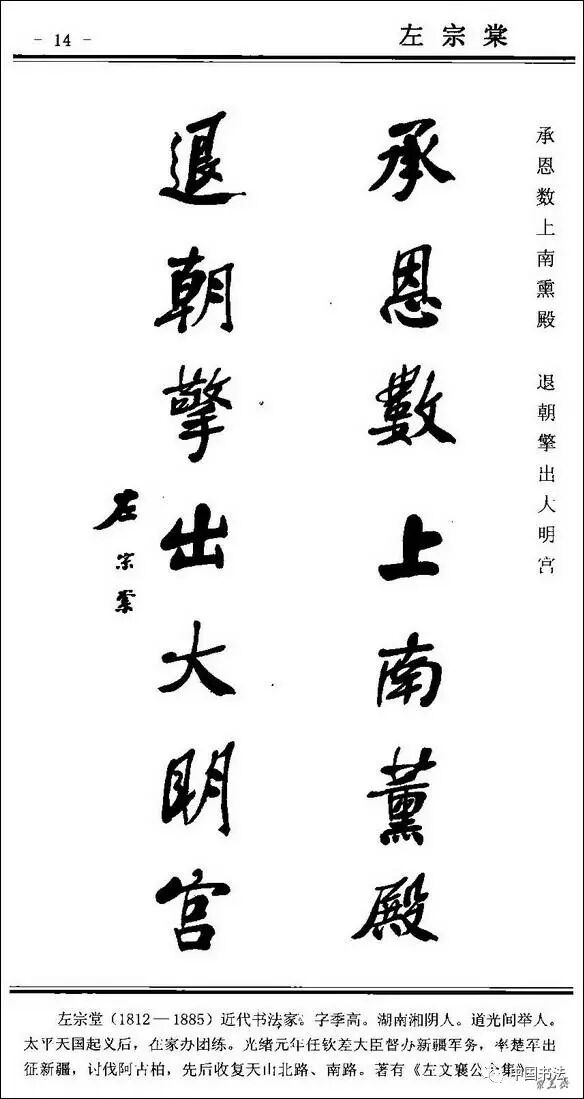 - 14 -
左宗棠
承恩数上南熏殿 退朝擎出大明宫
承恩數上南薰殿
退朝擎出大明宫
左宗棠
左宗堂（1812—1885）近代书法家。字季高。湖南湘阴人。道光间举人。
太平天国起义后，在家办团练。光绪元年任钦差大臣督办新疆军务，率楚军出
征新疆，讨伐阿古柏，先后收复天山北路、南路。著有《左文襄公集》
中国书法